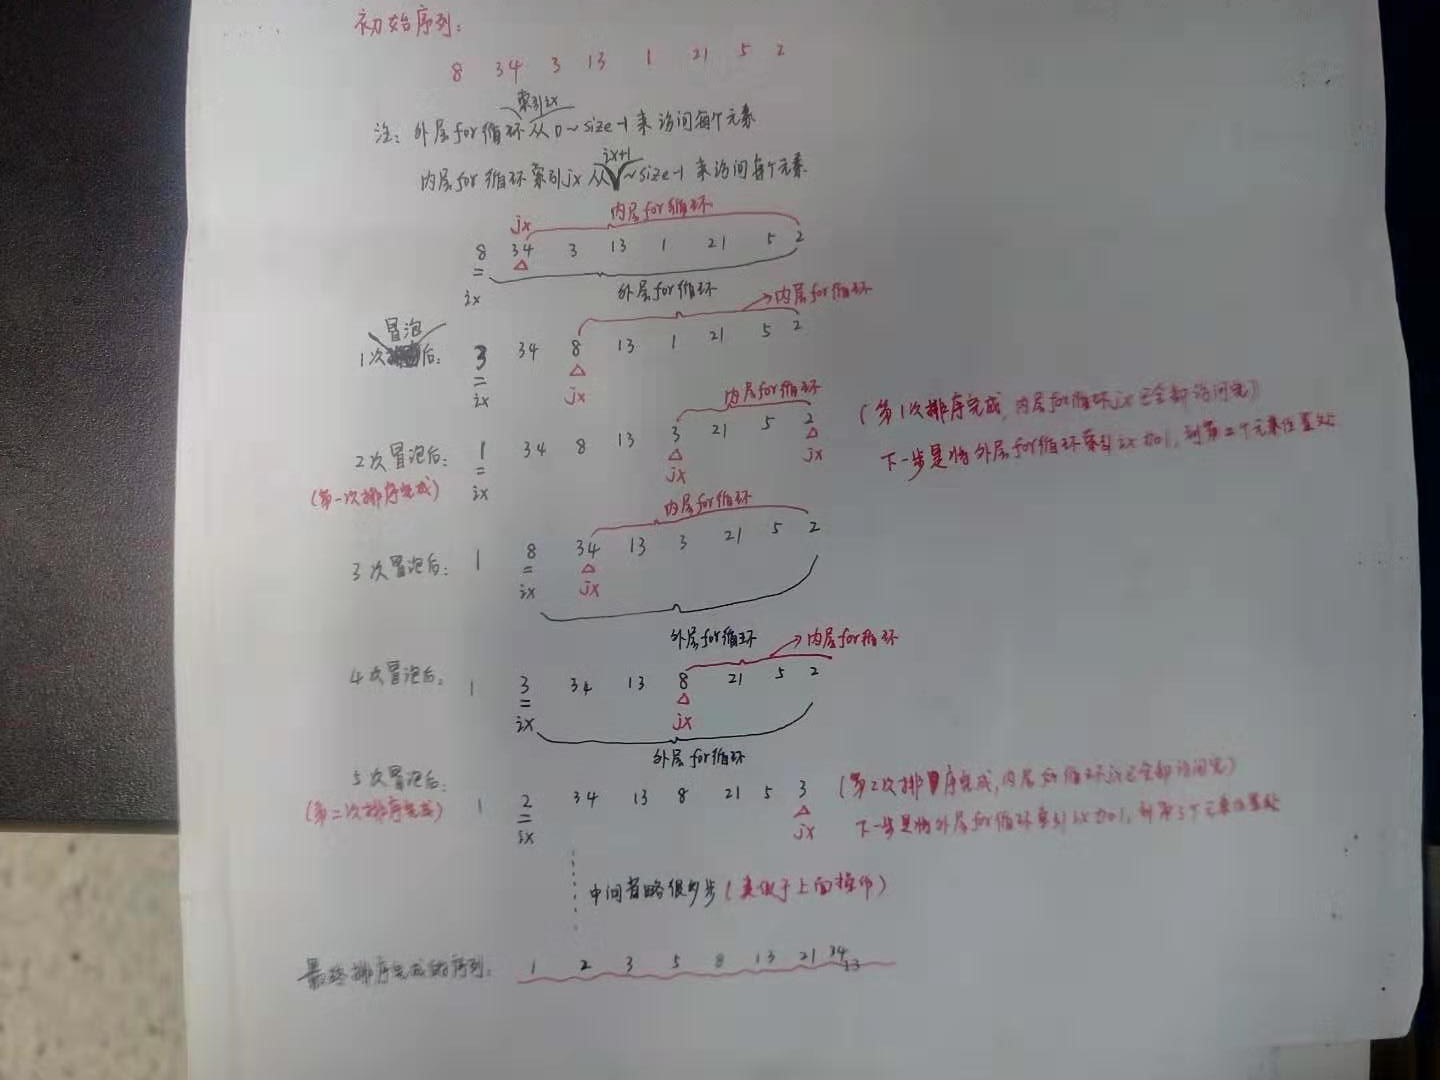 初始序列:
8 34 3 13 1 21 5 2
索引ix
注: 外层for循环从0~size-1来访问每个元素
ix+1
内层for循环索引jx从~size-1来访问每个元素
jx 内层for循环
8 34 3 13 1 21 5 2
ix 外层for循环
内层for循环
冒泡
1次后: 3 34 8 13 1 21 5 2
ix jx
内层for循环
2次冒泡后: 1 34 8 13 3 21 5 2 (第1次排序完成,内层for循环jx已全部访问完)
(第一次排序完成) ix jx jx 下一步是将外层for循环索引ix加1,到第二个元素位置处
内层for循环
3次冒泡后: 1 8 34 13 3 21 5 2
ix jx
外层for循环 内层for循环
4次冒泡后: 1 3 34 13 8 21 5 2
ix jx
外层for循环
5次冒泡后: 1 2 34 13 8 21 5 3 (第2次排序完成,内层for循环jx已全部访问完)
(第二次排序完成) ix jx 下一步是将外层for循环索引ix加1,到第3个元素位置处
中间省略很多步(类似于上面操作)
最终排序完成的序列: 1 2 3 5 8 13 21 34